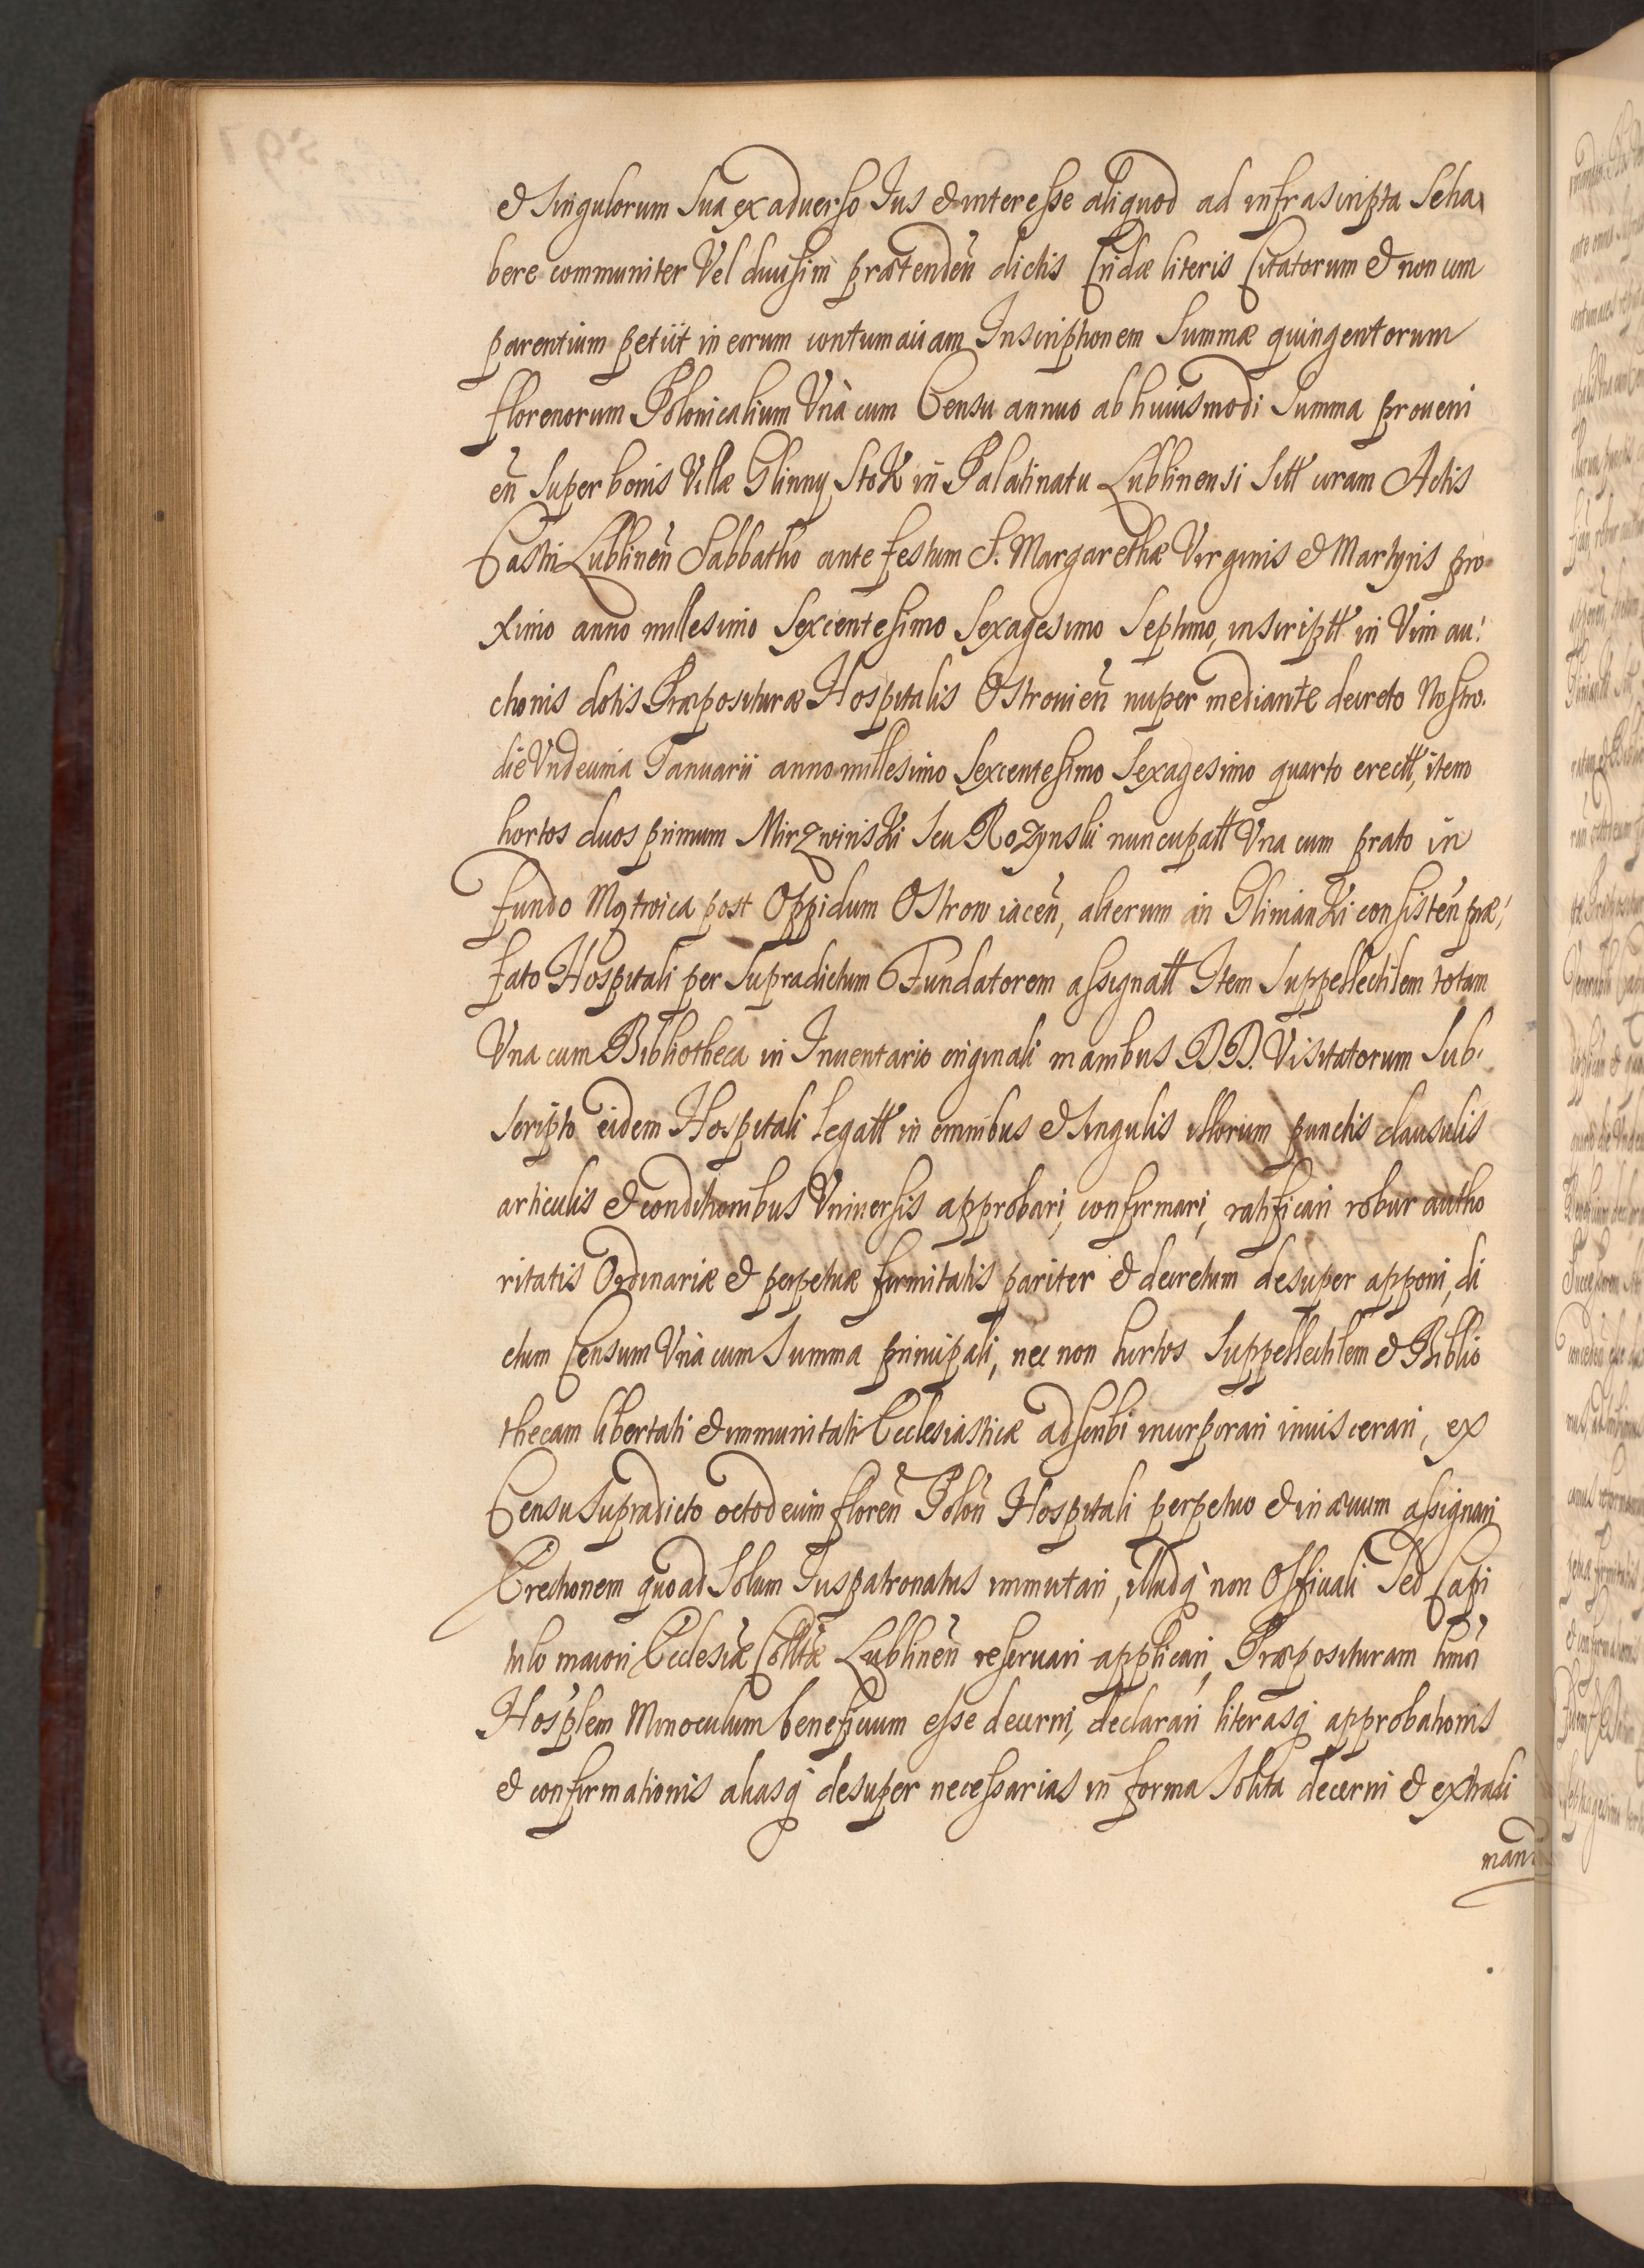 & singulorum sua ex aduerso Ius & interesse aliquod ad infrascripta se ha-
bere communiter Vel diuisim prætendeñ dictis Cridæ literis Citatorum & non com
parentium petiit in eorum contumaciam Inscriptionem Summæ quingentorum
florenorum Polonicalium Vnà cum Censu annuo ab huiusmodi Summa proueni
eñ super bonis Villæ Glinny Stok in Palatinatu Lublinensi sitt coram Actis
Castri Lublineñ Sabbatho ante festum S. Margarethæ Virginis & Martyris pro-
ximo anno millesimo sexcentesimo sexagesimo septimo, inscriptt in Vim au-
ctionis dotis Præpositurae Hospitalis Ostrouieñ nuper mediante decreto Nostro.
die Vndecima Januarii anno millesimo sexcentesimo sexagesimo quarto erectt, item
hortos duos primum Mirzwinski seu Rozynski nuncupatt Vna cum prato in
fundo Mątwica post Oppidum Ostrow iaceñ, alterum in Glinianki consisteñ præ-
fato Hospitali per supradictum Fundatorem assignatt Item suppellectilem totam
Vna cum Bibliotheca in Inuentario originali manibus DD. Visitatorum sub-
scripto eidem Hospitali legatt in omnibus & singulis illorum punctis clausulis
articulis & conditionibus Vniuersis approbari, confirmari, ratificari robur autho
ritatis Ordinariæ & perpetuæ firmitatis pariter & decretum desuper apponi, di
ctum Censum Vnà cum Summa principali, nec non hortos suppellectilem & Biblio
thecam libertati & immunitati Ecclesiasticæ adscribi incorporari inuiscerari, ex
Censu supradicto octodecim floreñ Poloñ Hospitali perpetuo & in æuum assignari
Erectionem quoad solum Juspatronatus immutari, illudq́ non Officiali sed Capi
tulo maiori Ecclesiæ Colltæ Lublineñ reseruari applicari, Præposituram huiusmoi
Hosplem Minoculum beneficium esse decerni, declarari literasq́ approbationis
& confirmationis aliasq́ desuper necessarias in forma solita decerni & extradi